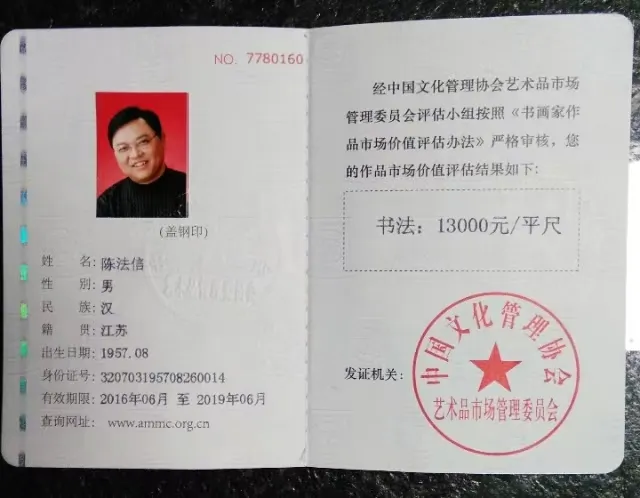 NO. 7780160
(盖钢印)
姓 名:陈法信
性 别:男
民 族:汉
籍 贯:江苏
出生日期:1957.08
身份证号:320703195708260014
有效期限:2016年06月 至 2019年06月
查询网址: www.ammc.org.cn
经中国文化管理协会艺术品市场
管理委员会评估小组按照《书画家作
品市场价值评估办法》严格审核，您
的作品市场价值评估结果如下:
书法: 13000元/平尺
发证机关:
中国文化管理协会
艺术品市场管理委员会